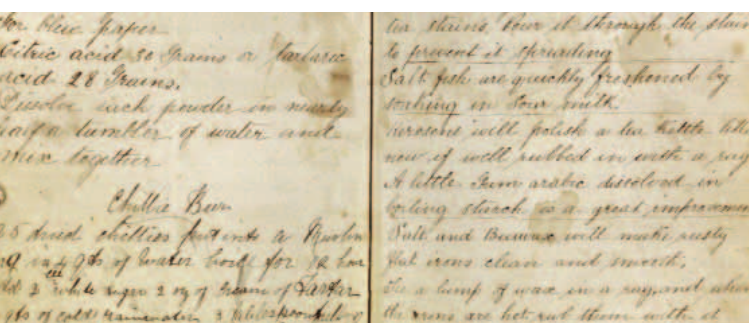 for blue paper
Citric acid 30 Grains or tartaric
acid 28 Grains.
Dissolve each powder in nearly
half a tumbler of water and
mix together
Chillie Beer
25 dried chillies put into a Muslin
in 4 qts of water boil for 1/2 hour
2 white sugar 2 oz of Cream of Tartar
qts of cold rainwater 3
tea stains, pour it through the stain
to prevent it spreading
Salt fish are quickly freshened by
soaking in sour milk.
Kerosene will polish a tea kettle like
new if well rubbed in with a rag
A little Gum arabic dissolved in
boiling starch is a great improvement
Salt and Beeswax will make rusty
flat irons clean and smooth.
Tie a lump of wax in a rag, and when
the irons are hot rub them with it